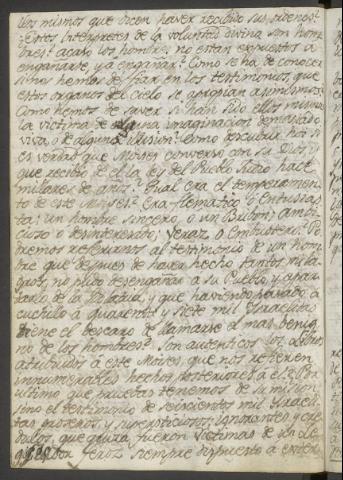 los mismos que dicen haver recibido sus ordenes?
¿Estos Interpretes de la voluntad divina son hom
bres? acaso los hombres no estan expuestos a
engañarse y a engañar? Como se ha de conocer
si nos hemos de fiar en los testimonios, que
estos organos del cielo se apropian a si mismos?
Como hemos de saver si han sido ellos mismos
la victima de alguna imaginacion demasiado
viva, o de alguna ilusion? Como descubrir hoi si
es verdad que Moises converso con su Dios, y
que recibio de el la ley del Pueblo Judio hace
millares de años? Qual era el temperamen
to de este Moises? Era flematico o Entusias
ta; un hombre sincero, o un Bribon; ambi
cioso o desinteresado; Veraz o Embustero? Po
dremos referirnos al testimonio de un hom
bre que despues de haver hecho tantos mila
gros, no pudo desengañar a su Pueblo, y apar
tarlo de la Idolatria, y que haviendo pasado à
cuchillo à quarenta y siete mil Israelitas
tiene el descaro de llamarse el mas benig
no de los hombres? Son autenticos los Libros
atribuidos à este Moises, que nos refieren
innumerables hechos posteriores à el? Por
ultimo que pruebas tenemos de su mision,
sino el testimonio de seiscientos mil Israeli
tas groseros, y supersticiosos, ignorantes y cre
dulos, que quiza fueron victimas de un Le
feroz siempre dispuesto a